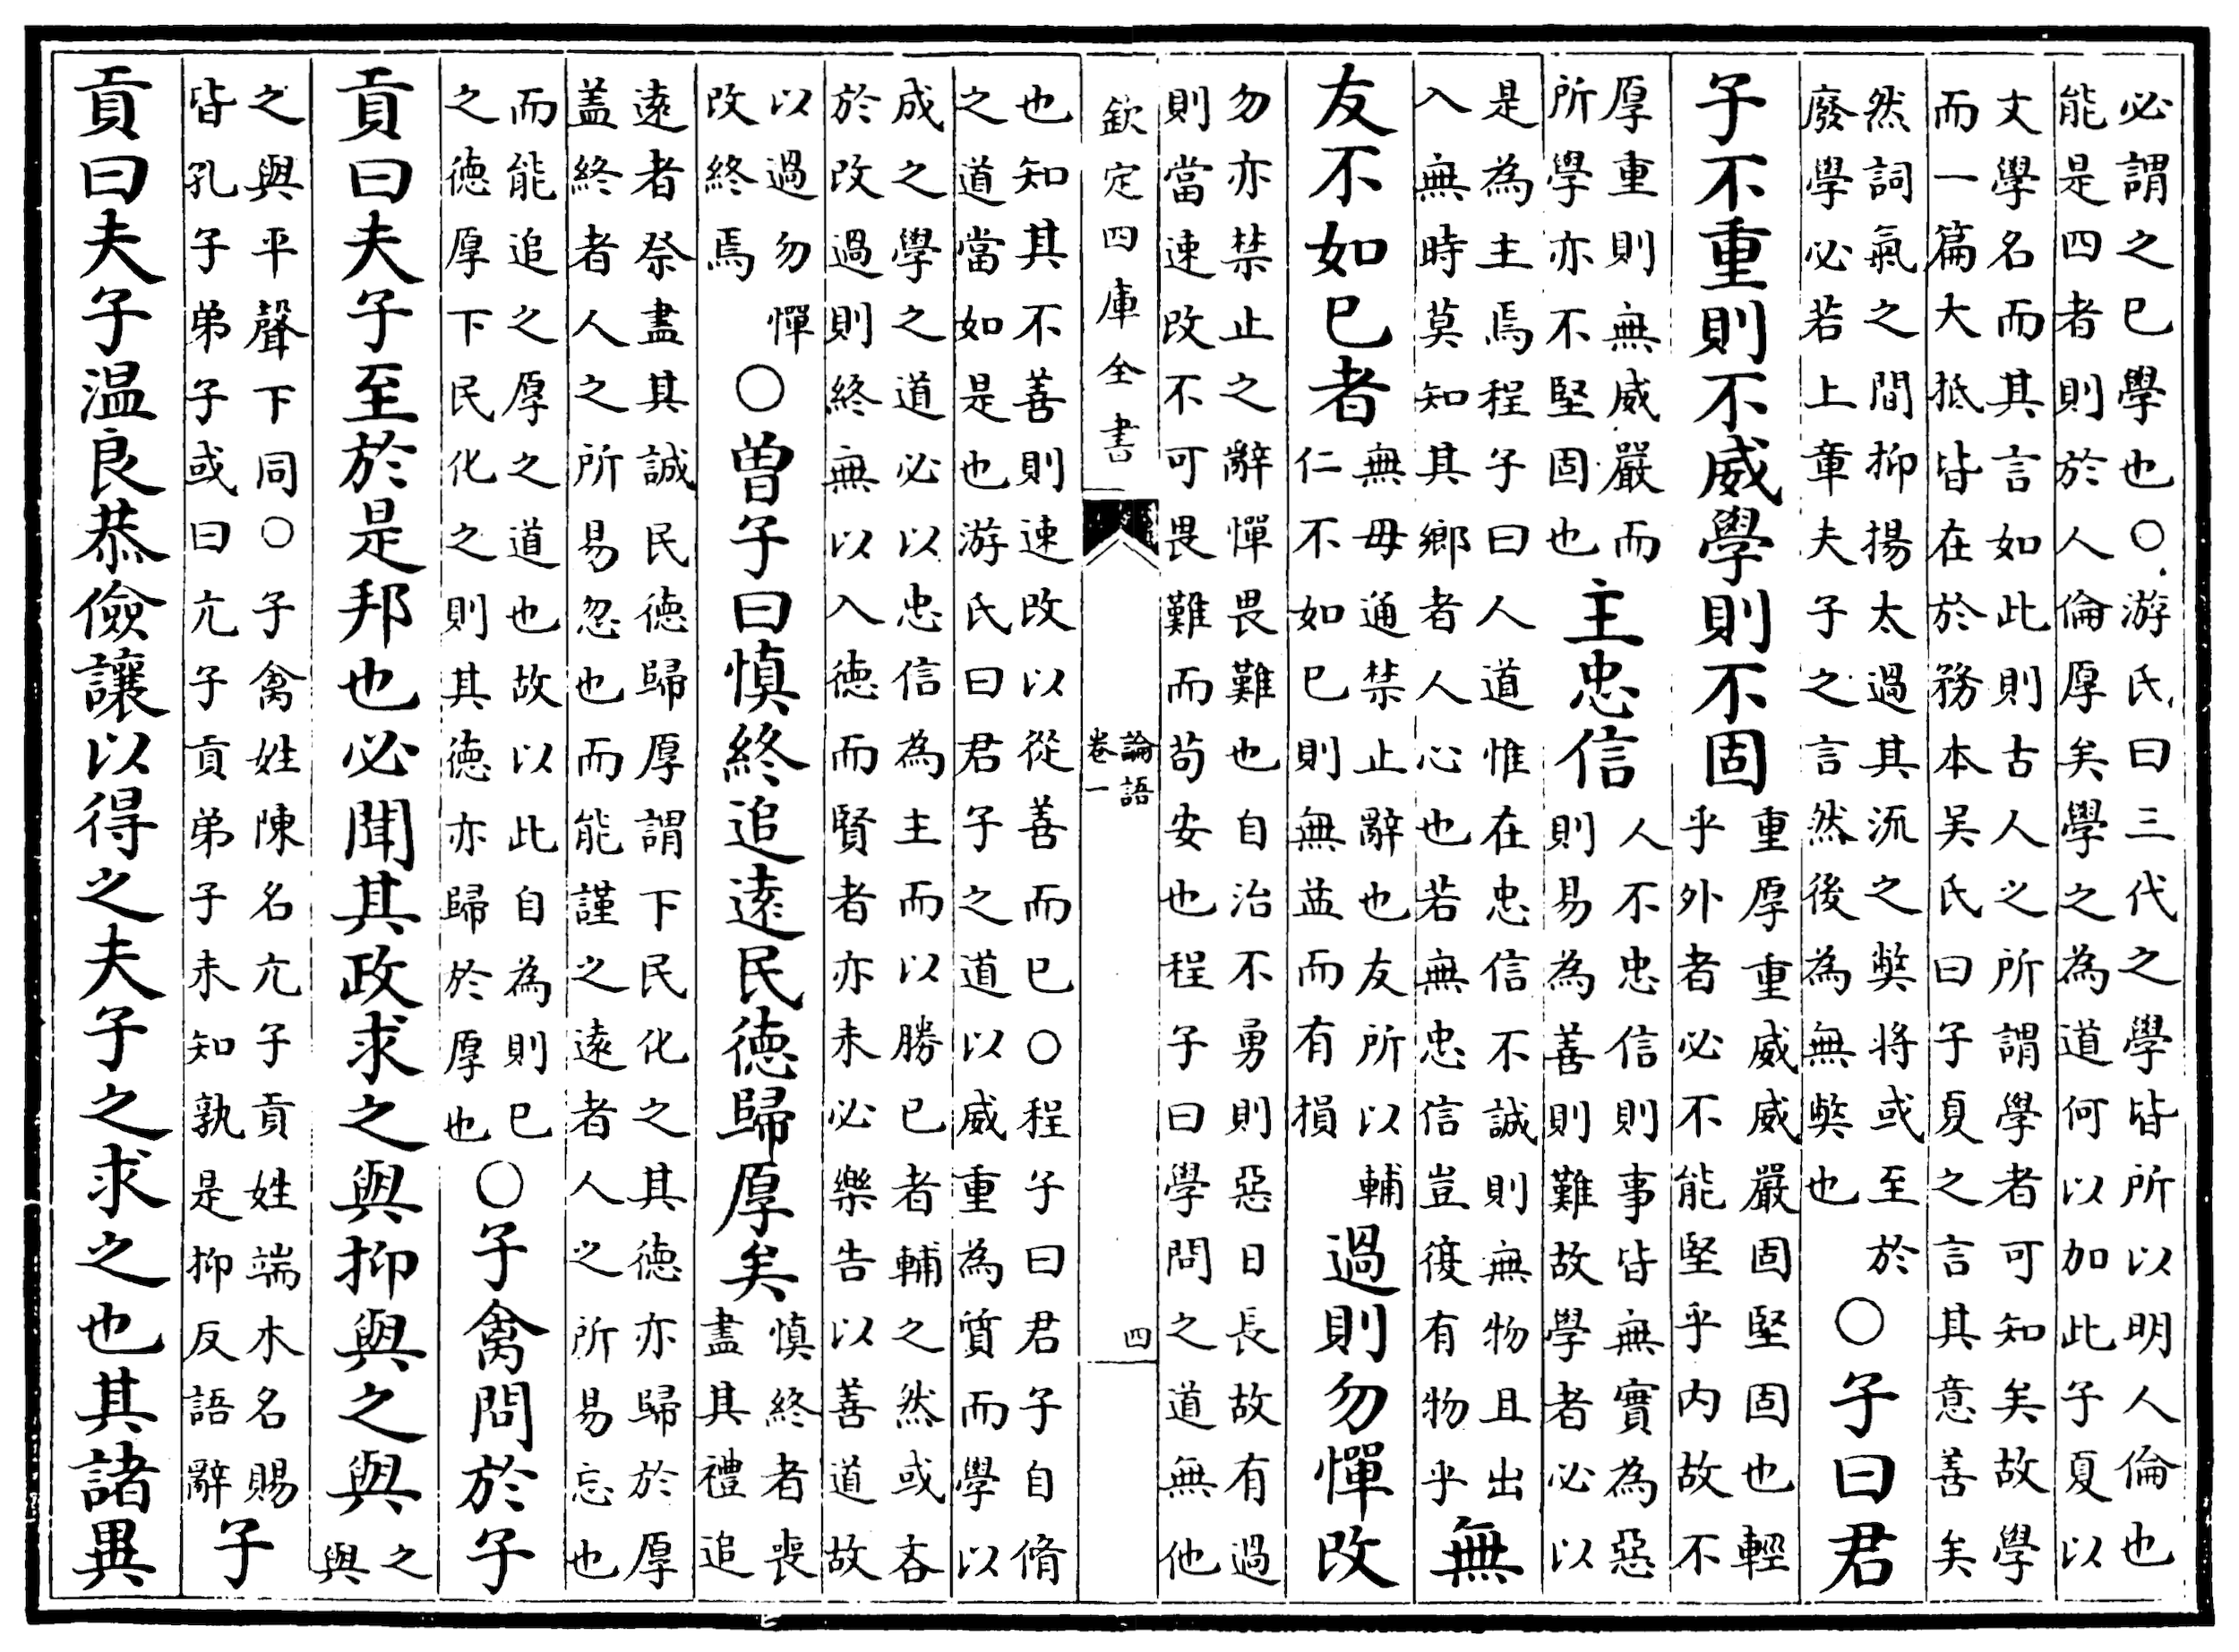 必謂之已學也○游氏曰三代之學皆所以明人倫也
能是四者則於人倫厚矣學之為道何以加此子夏以
文學名而其言如此則古人之所謂學者可知矣故學
而一篇大抵皆在於務本吴氏曰子夏之言其意善矣
然詞氣之間抑揚太過其流之弊將或至於
廢學必若上章夫子之言然後為無弊也
○子曰君
子不重則不威學則不固
重厚重威威嚴固堅固也輕
乎外者必不能堅乎内故不
厚重則無威嚴而
所學亦不堅固也
主忠信
人不忠信則事皆無實為惡
則易為善則難故學者必以
是為主焉程子曰人道惟在忠信不誠則無物且出
入無時莫知其鄉者人心也若無忠信豈復有物乎
無
友不如已者
無毋通禁止辭也友所以輔
仁不如已則無益而有損
過則勿憚改
勿亦禁止之辭憚畏難也自治不勇則惡日長故有過
則當速改不可畏難而苟安也程子曰學問之道無他
欽定四庫全書
論語
卷一
四
也知其不善則速改以從善而已○程子曰君子自脩
之道當如是也游氏曰君子之道以威重為質而學以
成之學之道必以忠信為主而以勝已者輔之然或吝
於改過則終無以入徳而賢者亦未必樂告以善道故
以過勿憚
改終焉
○曾子曰慎終追逺民徳歸厚矣
慎終者喪
盡其禮追
逺者祭盡其誠民徳歸厚謂下民化之其徳亦歸於厚
盖終者人之所易忽也而能謹之逺者人之所易忘也
而能追之厚之道也故以此自為則已
之徳厚下民化之則其徳亦歸於厚也
○子禽問於子
貢曰夫子至於是邦也必聞其政求之與抑與之與
之
與
之與平聲下同○子禽姓陳名亢子貢姓端木名賜
皆孔子弟子或曰亢子貢弟子未知孰是抑反語辭
子
貢曰夫子温良恭儉讓以得之夫子之求之也其諸異